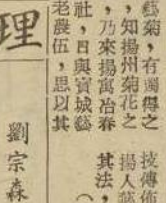 藝菊，有獨得之
，知揚州菊花之
，乃來揚寓冶春
社，日與賓城藝
老農伍，思以其
技傳佈
揚人藝
其法，
理
劉宗森